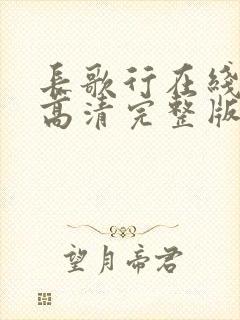 长歌行在线
高清完整版
望月帝君